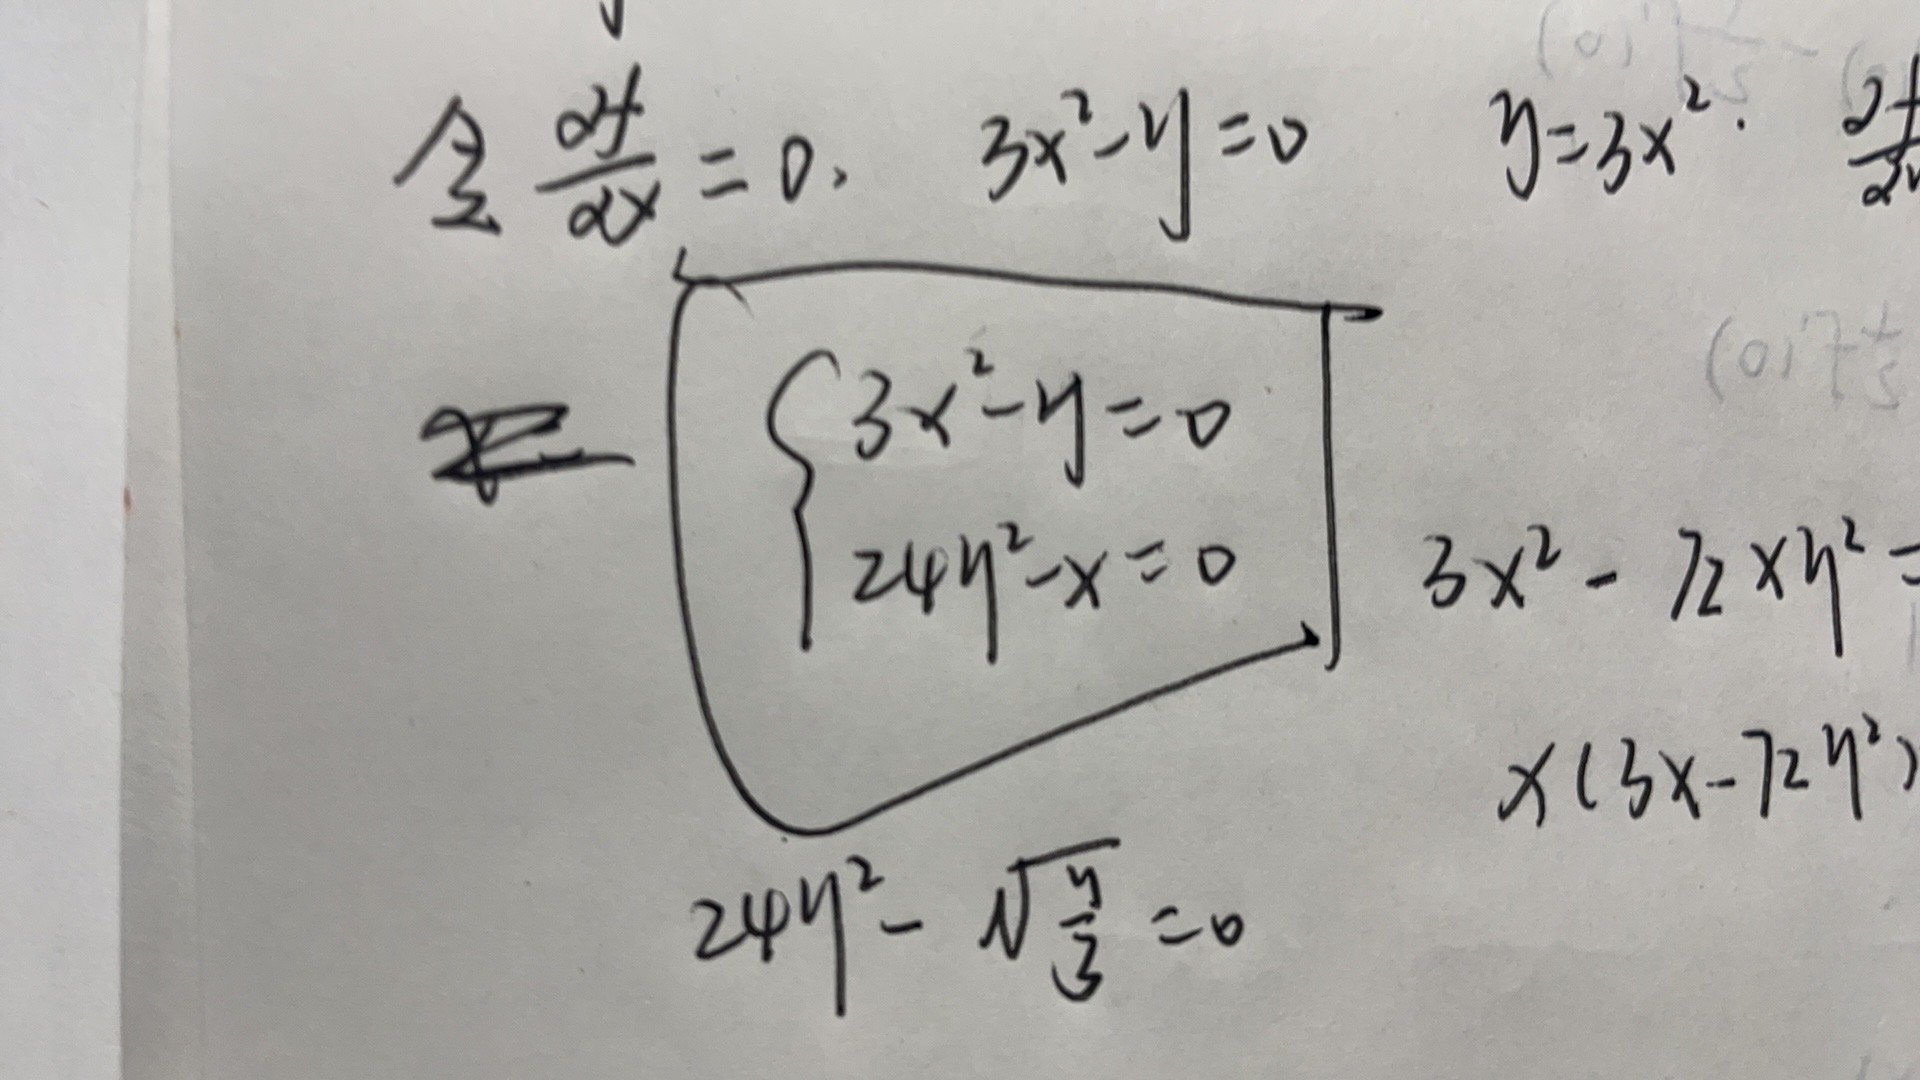 令 ∂f/∂x = 0, 3x²-y=0 y=3x².
{ 3x²-y=0
24y²-x=0
3x² - 72xy² =
x(3x-72y²)
24y² - √(y/3) = 0